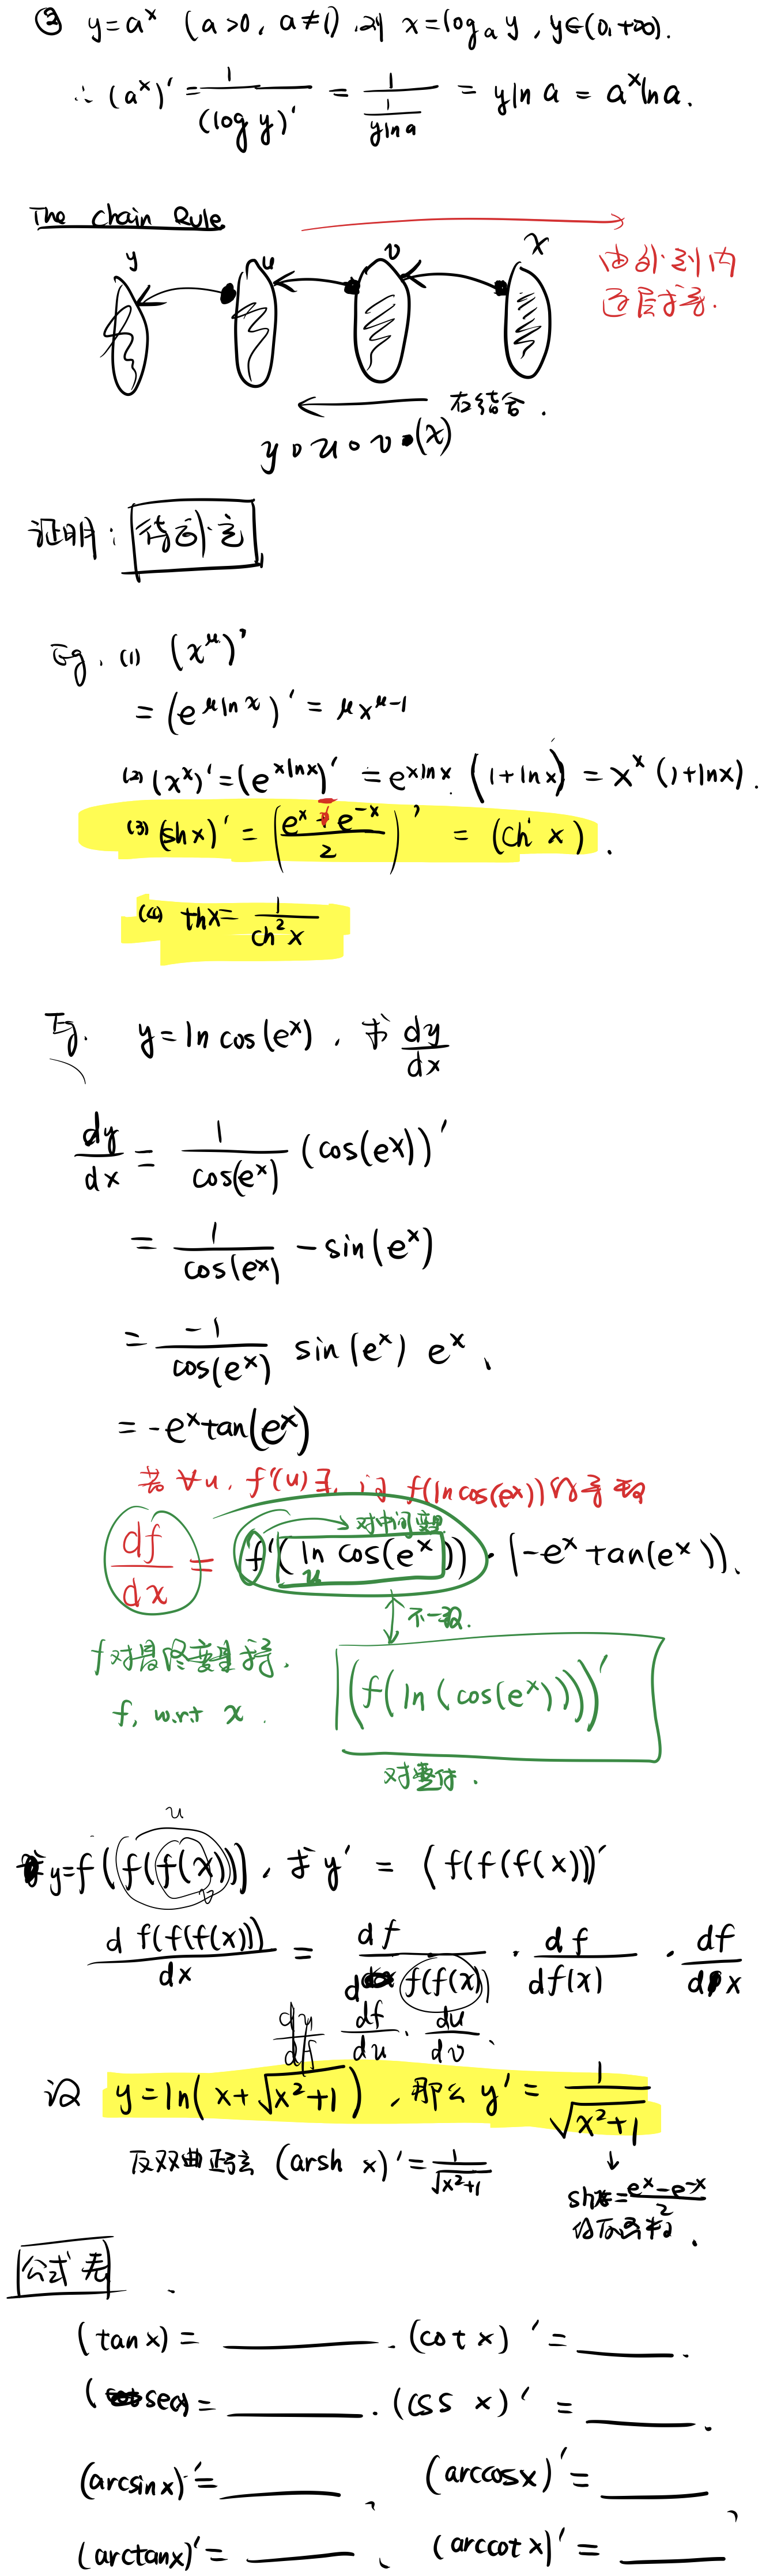 ③ y=aˣ (a>0, a≠1), 则 x=logₐy, y∈(0,+∞).
∴ (aˣ)' = 1/(log y)' = 1/(1/(y ln a)) = y ln a = aˣ ln a.
The Chain Rule
y u v x
由外到内
逐层求导.
右结合.
y∘u∘v∘(x)
证明:
Eg. (1) (x^μ)'
= (e^(μ ln x))' = μx^(μ-1)
(2) (xˣ)' = (e^(x ln x))' = e^(x ln x) (1+ln x) = xˣ (1+ln x).
(3) (sh x)' = ((eˣ - e⁻ˣ)/2)' = (ch x).
(4) th x = 1/(ch² x)
Eg. y = ln cos(eˣ), 求 dy/dx
dy/dx = 1/cos(eˣ) (cos(eˣ))'
= 1/cos(eˣ) -sin(eˣ)
= -1/cos(eˣ) sin(eˣ) eˣ
= -eˣ tan(eˣ)
若 ∀u, f'(u)∃, 问 f(ln cos(eˣ)) 的导数
对中间变量
df/dx = f'(ln cos(eˣ)) · (-eˣ tan(eˣ)).
u
不一致.
f对最终变量求导.
f, w.r.t x.
(f(ln(cos(eˣ))))'
对整体.
u
y=f(f(f(x))), 求 y' = (f(f(f(x)))'
v
d f(f(f(x)))/dx = df/d f(f(x)) · df/df(x) · df/dx
dy/df df/du · du/dv
设 y=ln(x+√(x²+1)), 那么 y' = 1/√(x²+1)
反双曲正弦 (arsh x)' = 1/√(x²+1)
↓
sh x = (eˣ-e⁻ˣ)/2
的反函数.
公式表
(tan x) = ____. (cot x)' = ____.
(sec x) = ____. (css x)' = ____.
(arcsin x)' = ____, (arccos x)' = ____,
(arctan x)' = ____, (arccot x)' = ____